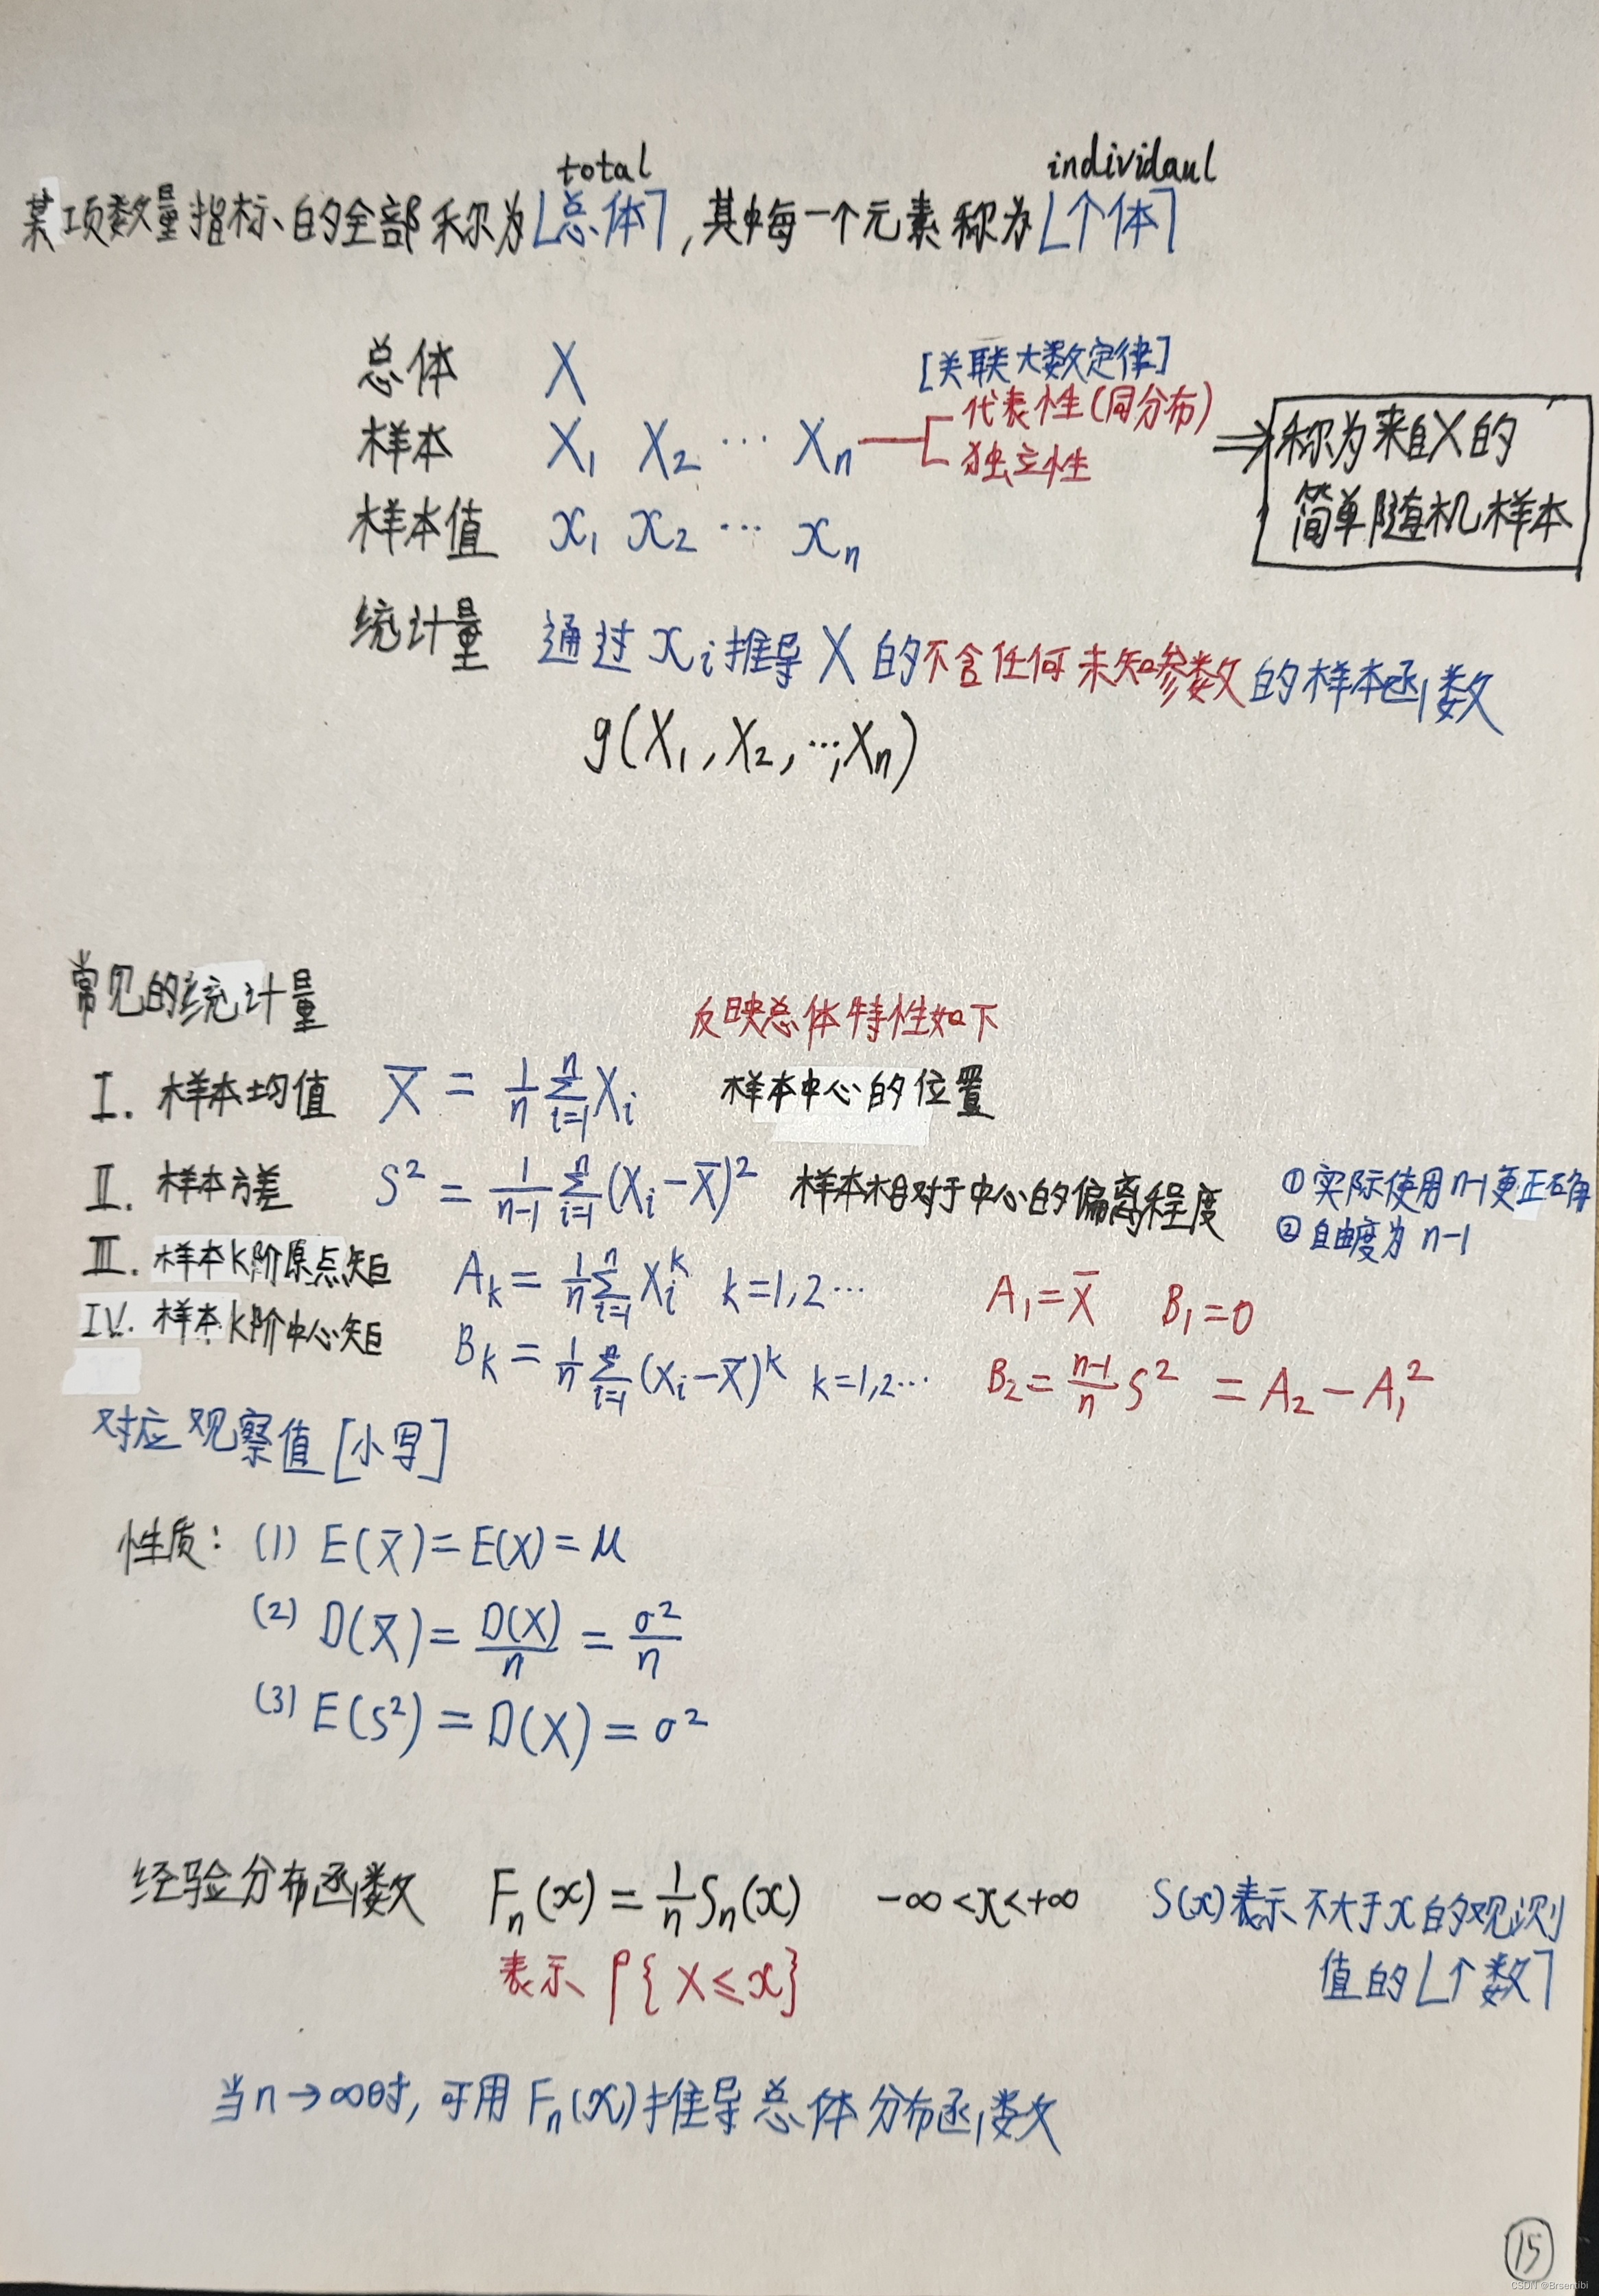 total individaul
某项数量指标的全部称为「总体」,其中每一个元素称为「个体」
总体 X [关联大数定律]
样本 X₁ X₂ ⋯ Xₙ 代表性(同分布) 独立性 ⇒ 称为来自X的
简单随机样本
样本值 x₁ x₂ ⋯ xₙ
统计量 通过xᵢ推导X的不含任何未知参数的样本函数
g(X₁,X₂,⋯,Xₙ)
常见的统计量
反映总体特性如下
I. 样本均值 X̄ = 1/n ∑ᵢ₌₁ⁿ Xᵢ 样本中心的位置
II. 样本方差 S² = 1/(n-1) ∑ᵢ₌₁ⁿ (Xᵢ-X̄)² 样本相对于中心的偏离程度 ①实际使用n-1更正确
②自由度为n-1
III. 样本k阶原点矩 Aₖ = 1/n ∑ᵢ₌₁ⁿ Xᵢᵏ k=1,2⋯ A₁=X̄ B₁=0
IV. 样本k阶中心矩 Bₖ = 1/n ∑ᵢ₌₁ⁿ (Xᵢ-X̄)ᵏ k=1,2⋯ B₂=(n-1)/n S² = A₂-A₁²
对应观察值[小写]
性质: (1) E(X̄)=E(X)=μ
(2) D(X̄)=D(X)/n=σ²/n
(3) E(S²)=D(X)=σ²
经验分布函数 Fₙ(x)=1/n Sₙ(x) -∞<x<+∞ S(x)表示不大于x的观测
值的「个数」
表示P{X≤x}
当n→∞时,可用Fₙ(x)推导总体分布函数
15
CSDN @Brsentibi